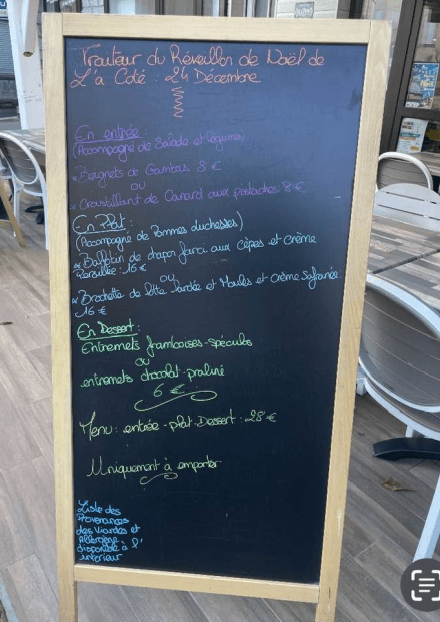 Traiteur du Réveillon de Noël de
L'à Coté : 24 Décembre
En entrée :
(Accompagné de Salade et légume)
* Beignets de Gambas 8 €
ou
* Croustillant de Canard aux pistaches : 8 €
En Plat :
(Accompagné de Pommes duchesses)
* Ballotin de chapon farci aux cèpes et crème
Persillée : 16 €
ou
* Brochette de lotte lardée et Moules et crème Safranée
16 €
En Dessert :
Entremets framboises-spéculos
ou
entremets chocolat-praliné
6 €
Menu : entrée - plat - Dessert : 28 €
Uniquement à emporter
Liste des
Provenances
des viandes et
Allergène
disponible à l'
intérieur